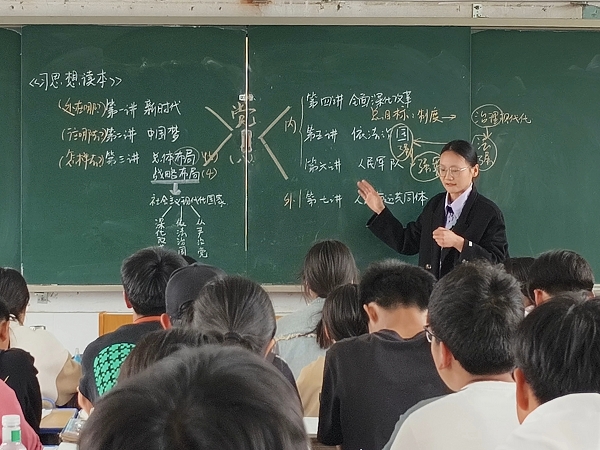 《习思想读本》
(处在哪?) 第一讲 新时代
(行动?) 第二讲 中国梦
(怎样?) 第三讲 总体布局
战略布局(4)
社会主义现代化国家
深化改革
依法治国
从严治党
党
内
第四讲 全面深化改革
总目标:制度→治理现代化
第五讲 依法治国
法
第六讲 人民军队
强
外 第七讲 人 运共同体